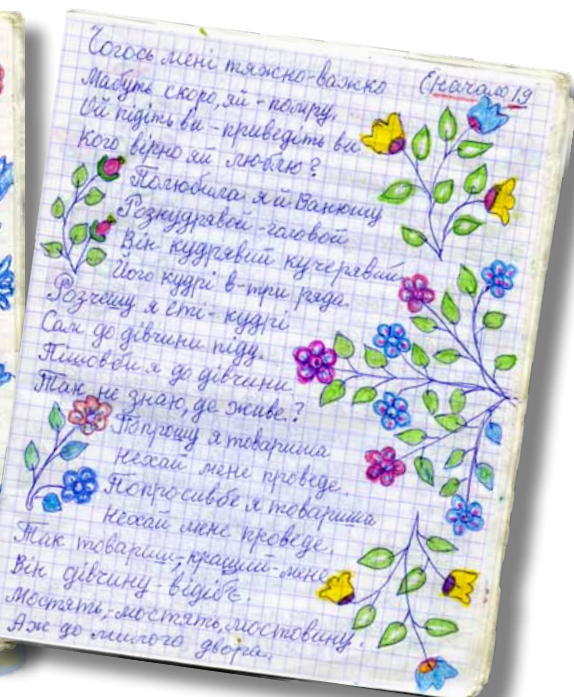 Чогось мені тяжко-важко
(начало 19
Мабуть скоро, яй-помру.
Ой підіть ви-приведіть ви
Кого вірно яй люблю?
Полюбила яй Ванюшу
Рознудрявой-головой
Він кудрявий кучерявий
Його кудрі в-три ряда.
Розчешу я еті-кудрі
Сам до дівчини піду.
Пішовби я до дівчини
Так не знаю, де живе?
Попрошу я товариша
Нехай мене проведе.
Попросивбе я товариша
Нехай мене проведе.
Так товариш, кращий-мене
Він дівчину-відібє.
Мостять,-мостять, мостовину.
Аж до милого двора.